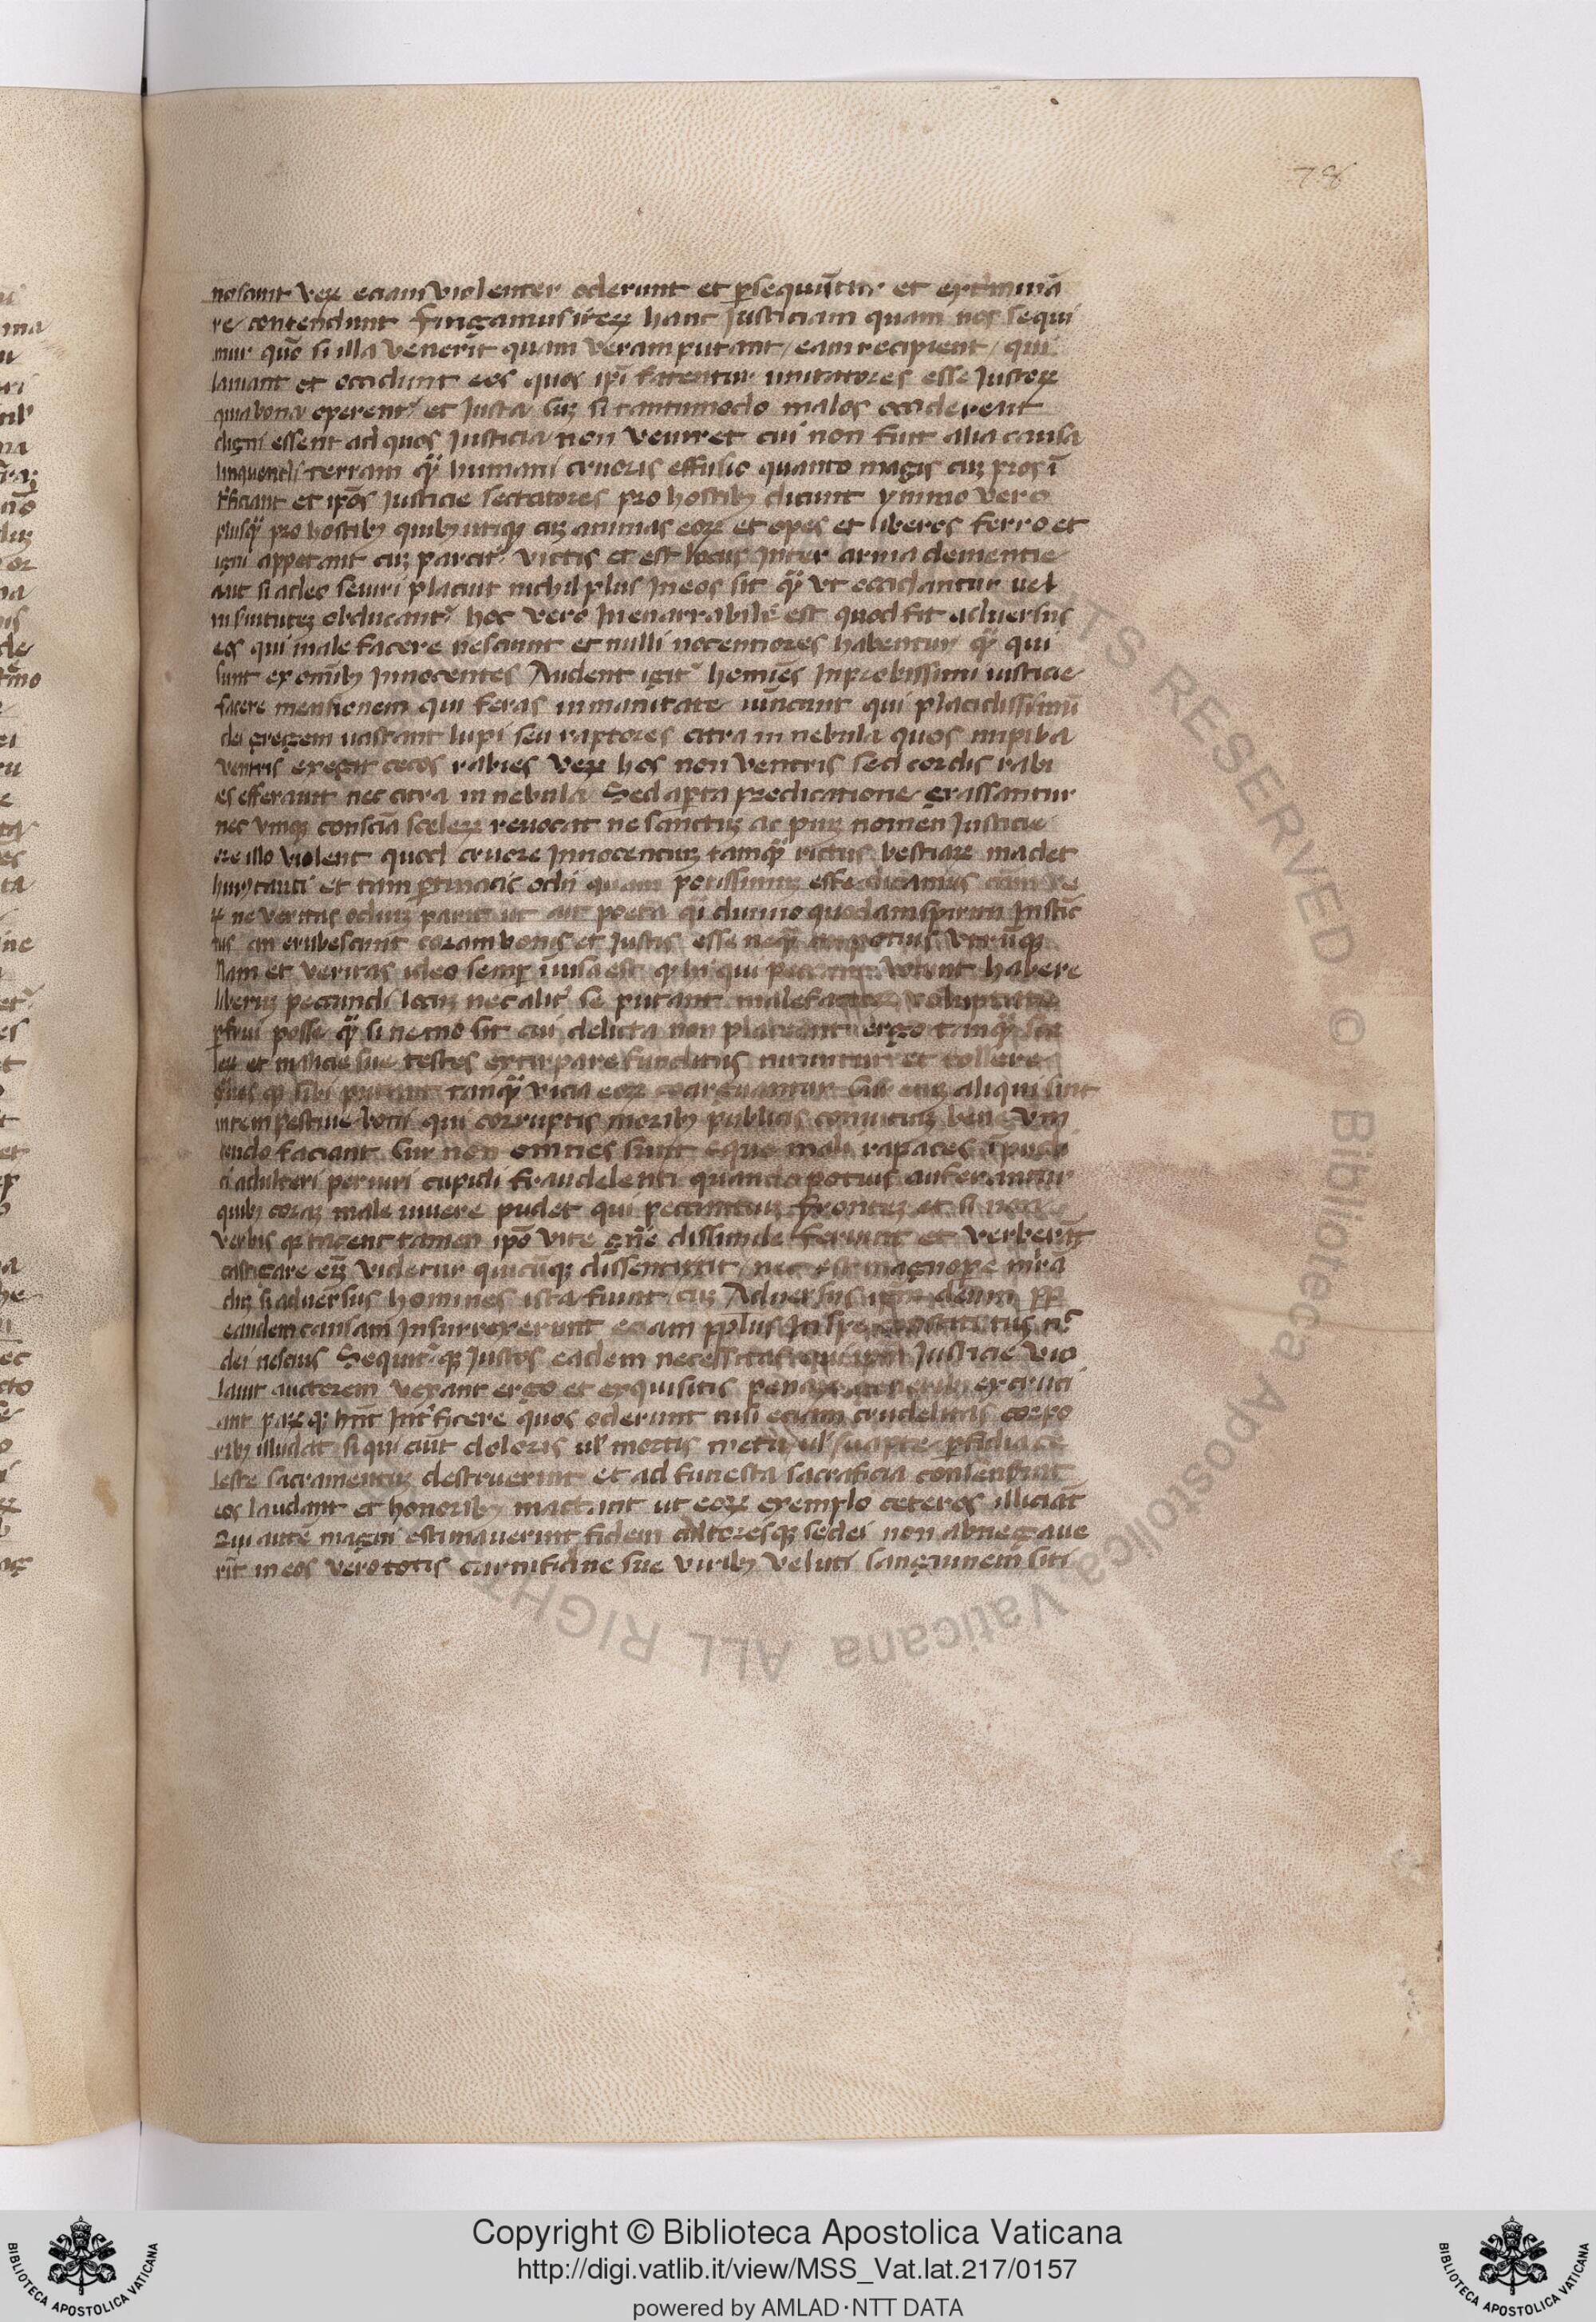 78
noscunt veꝝ eciam violenter oderunt et ꝑsequūtur et extminā
re contendunt fingamus iteꝝ hanc Justiciam quam nos sequi
mur quō si illa venerit quam veram putant / eam recipient / qui
laniant et occidunt eos quos ipī fatentur imitatores esse Justoꝝ
quia bona operent᷑ et Justa Cuꝫ si tantumodo malos occiderent
digni essent ad quos Justicia non veniret cui non fuit alia causa
linquendi terram qͣꝫ humani cruoris effusio quanto magis cuꝫ pios
et ipōs Justicie sectatores pro hostibꝫ dicunt ymmo vero
plusqͣꝫ pro hostibꝫ quibꝫ utiqꝫ cuꝫ animas eoꝝ et opes et liberos ferro et
igni appetant cuꝫ parcit᷑ victis et est locus Inter arma clementie
aut si adeo seuiri placuit nichil plus In eos fit qͣꝫ vt occidantur uel
in seruitutꝫ abducant᷑ hoc vero Inenarrabile est quod fit aduersus
eos qui male facere nesciunt et nulli nocentiores habentur qͣꝫ qui
sunt ex omībꝫ Innocentes Audent igit᷑ homīes Inprobissimi iusticie
facere mentionem qui feras inmanitate uincunt qui placidissimū
dei gregem uastant lupi seu raptores atra in nebula quos inproba
ventris exegit cecos rabies veꝝ hos non ventris sed cordis rabi
es efferauit nec atra in nebula Sed aꝑta predicatione grassantur
nec vmqꝫ consciā sceleꝝ reuocat ne sanctuꝫ ac piuꝫ nomen Justicie
ore illo violent quod cruore Innocentuꝫ tamqͣꝫ rictus bestiaꝝ madet
huiꝰ tanti et tam ꝑtinacis odii quam potissimuꝫ esse dicamus cām ve
ꝝ ne veritas odiuꝫ parit ut ait poeta qͣi diuino quodam spiritu Instīc
tus an erubescunt coram bonis et Justis esse neqͣꝫ an potius vtrūqꝫ
Nam et veritas ideo semꝑ īuisa est ꝙ hi qui peccant volunt habere
liberuꝫ peccandi locuꝫ nec alit᷑ se putant malefactoꝝ voluptate
ꝑfrui posse qͣꝫ si nemo sit cui delicta non placeant ergo tanqͣꝫ sce
leꝝ et malicie sue testes extirpare funditus nituntur et tollere
quos sibi putant tanqͣꝫ vita eoꝝ coarguantur Cur enꝫ aliqui sint
intempestiue boni qui corruptis moribꝫ publicis conuiciuꝫ bene viu
endo faciant Cur non omnes sunt eque mali rapaces īpudi
ci adulteri periuri cupidi fraudelenti quando potius auferantur
quibꝫ coraꝫ male uiuere pudet qui peccantiuꝫ frontꝫ et si non
verbis ꝙ tacent tamen ipō vite gn̄e dissimile feriunt et verberāt
castigare enꝫ videtur quicūqꝫ dissentit nec est magnope mirā
duꝫ si aduersus homines ista fiunt cuꝫ Aduersus deum ꝓꝑ
eandem causam Insurrexerunt eciam pplus In spe constitutus
dei nescius Sequit᷑qꝫ Justos eadem necessitas qui ipm̄ Justicie vio
lauit auctorem vexant ergo et exquisitis penaꝝ generibꝫ excruci
ant paꝝqꝫ hn̄t Int᷑ficere quos oderunt nisi eciam crudelitas corpo
ribꝫ illudat si qui aūt doloris ul᷑ mortis metu ul᷑ suapte ꝑfidia ce
leste sacramentuꝫ destruerint et ad funesta sacrificia consenserint
eos laudant et honoribꝫ mactant ut eoꝝ exemplo ceteros illiciāt
Qui autē magni estimauerunt fidem cultoresqꝫ se dei non abnegaue
rīt in eos vero totis carnificine sue viribꝫ veluti sanguinem siti
Copyright © Biblioteca Apostolica Vaticana
http://digi.vatlib.it/view/MSS_Vat.lat.217/0157
powered by AMLAD·NTT DATA
BIBLIOTECA APOSTOLICA VATICANA
BIBLIOTECA APOSTOLICA VATICANA
ALL RIGHTS RESERVED © Biblioteca Apostolica Vaticana